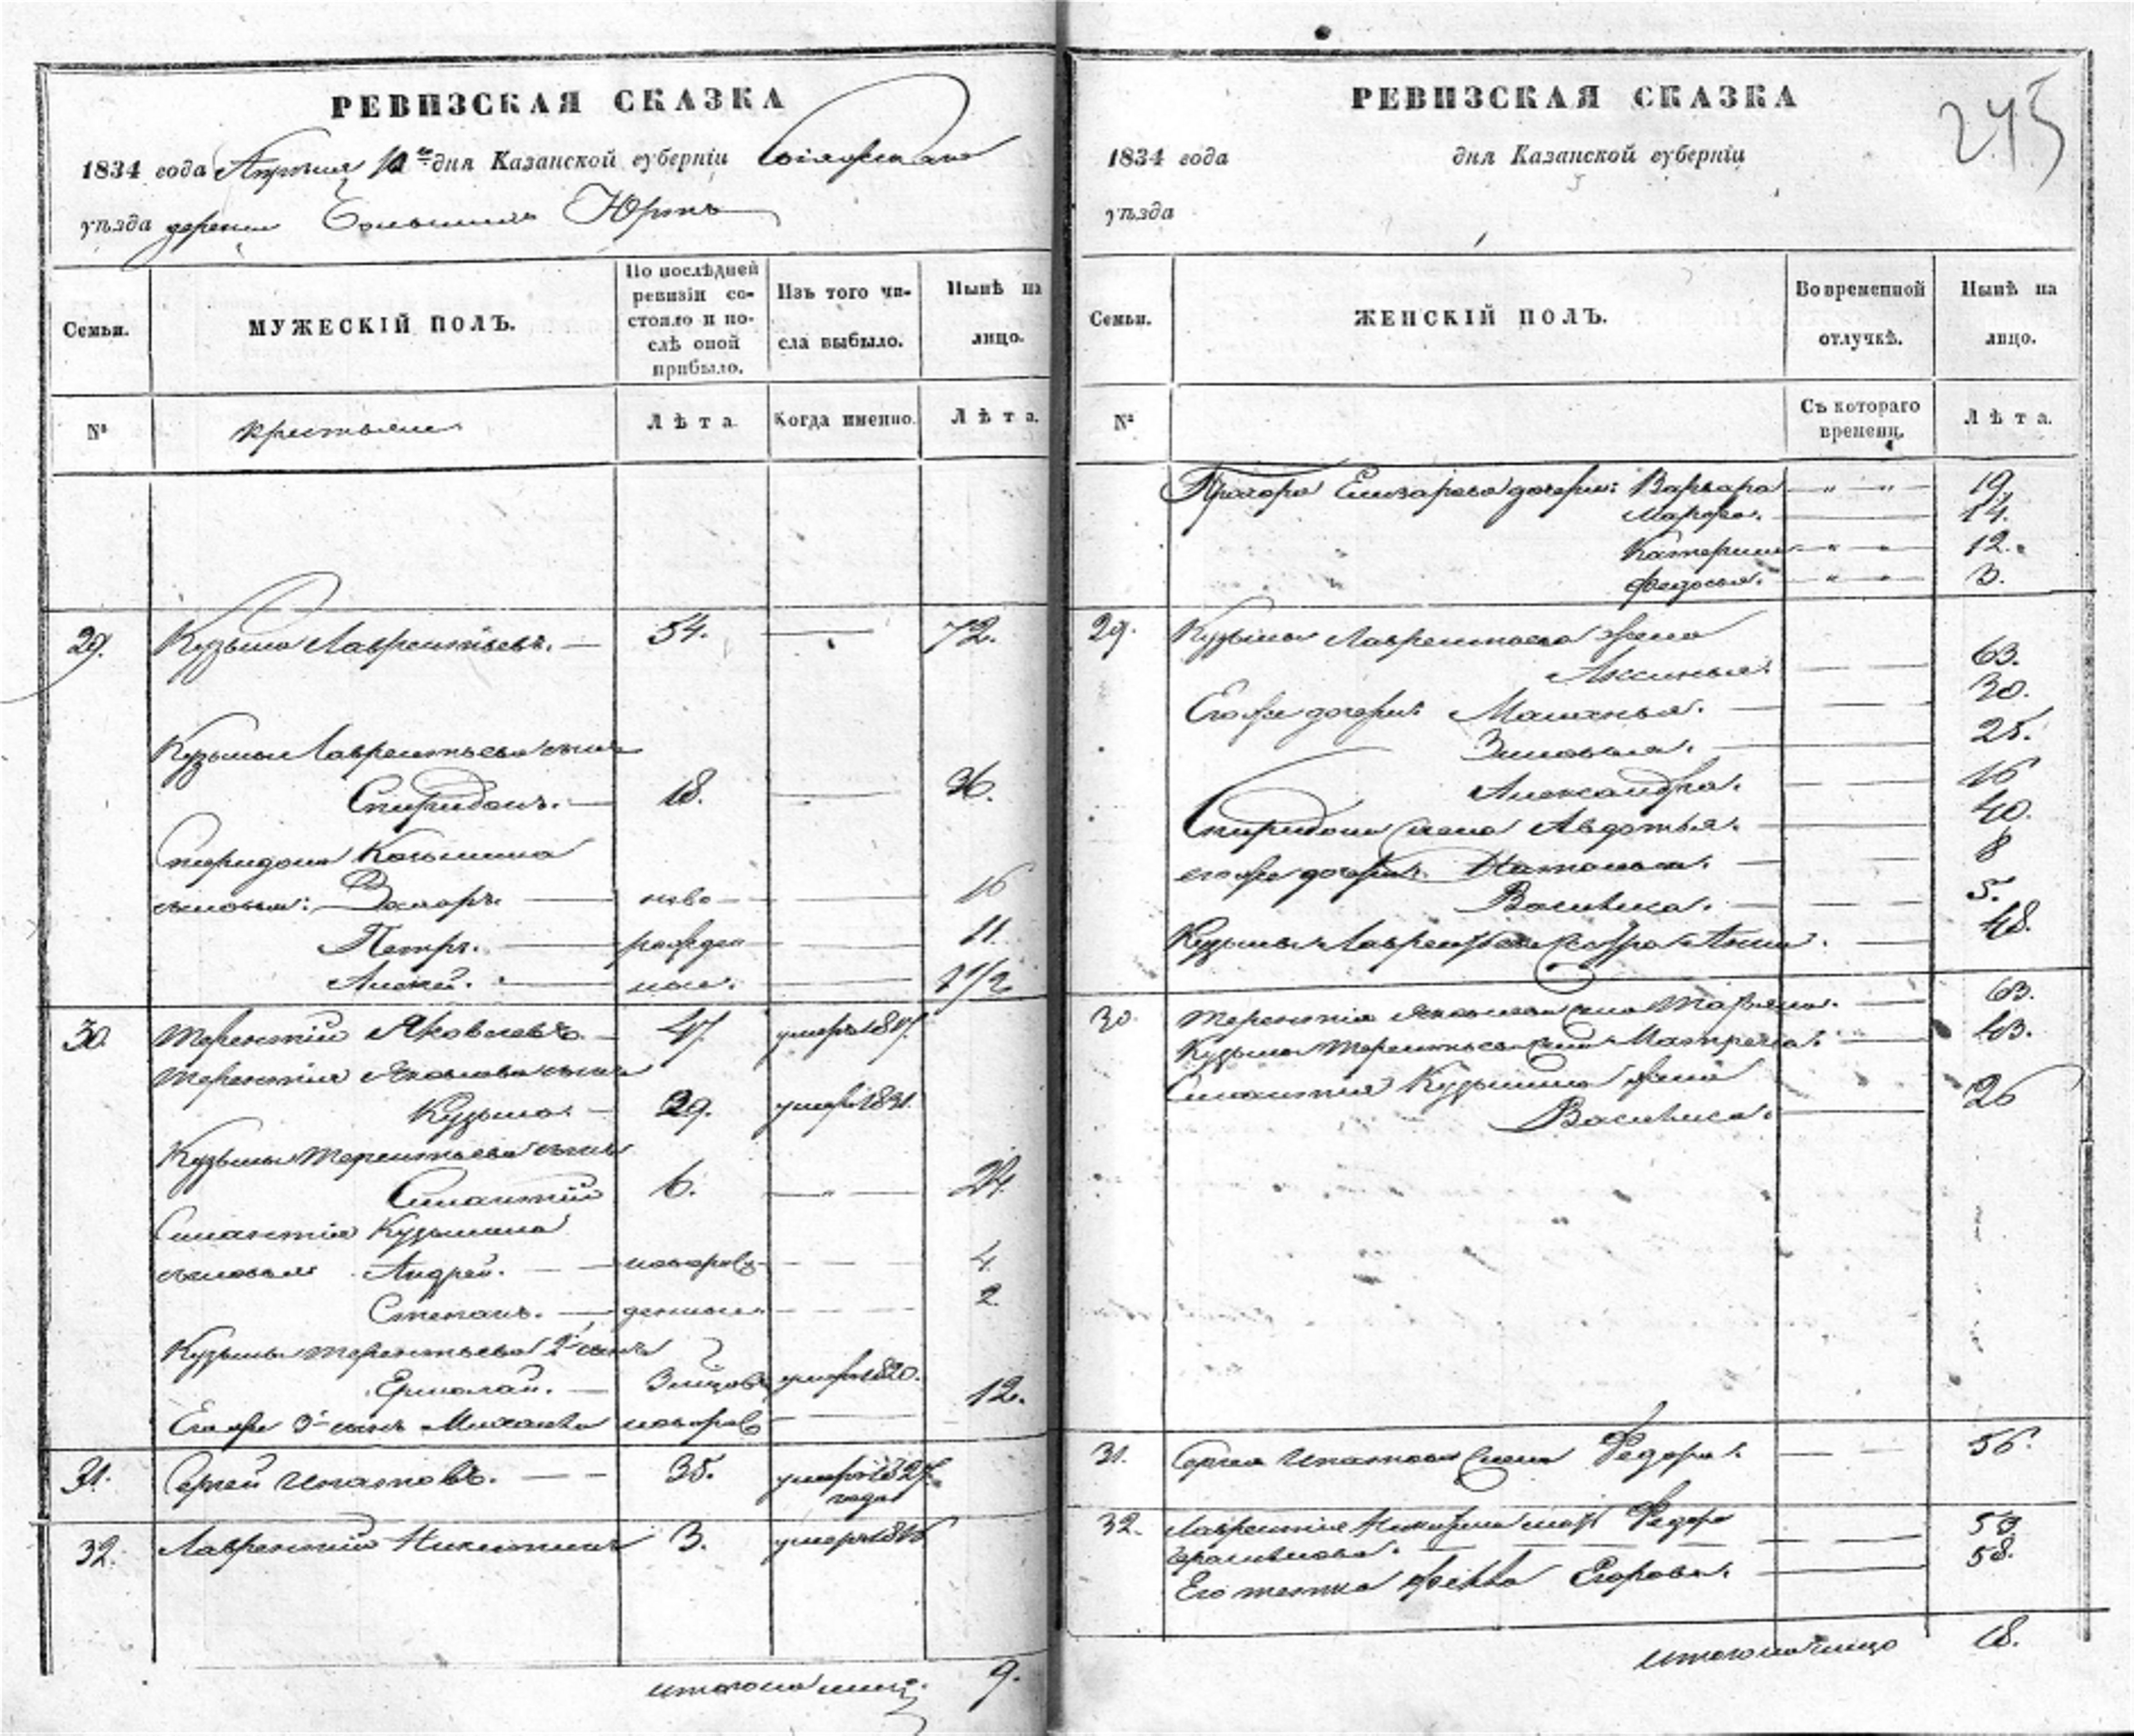 РЕВИЗСКАЯ СКАЗКА
1834 года Апреля 10го дня Казанской губерніи
уѣзда деревни Юртъ
Семьи.
МУЖЕСКІЙ ПОЛЪ.
По послѣдней ревизіи состояло и послѣ оной прибыло.
Изъ того числа выбыло.
Нынѣ на лицо.
№
крестьяне
Лѣта
Когда именно.
Лѣта.
29. Кузьма Лаврентьевъ. — 54. — 72.
Кузьмы Лаврентьева сынъ
Спиридонъ. — 18. — 36.
Спиридона Козьмина
сыновья: Захаръ — ново — 16
Петръ. — рожден — 11.
Алексей. — ные. — 7 1/2
30. Терентій Яковлевъ — 47. умеръ 1817.
Терентія Яковлева сынъ
Кузьма. — 29. умеръ 1831.
Кузьмы Терентьева сынъ
6. — „ — 24.
Кузьмина
сыновья Андрей. — новорож — 4
Степанъ. — денные — 2.
Кузьмы Терентьева 2й сынъ
Ермолай. — умеръ 1820.
Его же 3й сынъ Михайла новорож — 12.
31. Сергей Ипатовъ. — 35. умеръ 1827
года
32. Лаврентій Никитинъ 3. умеръ 1816
итого на лицо. 9.
РЕВИЗСКАЯ СКАЗКА
245
1834 года дня Казанской губерніи
уѣзда
Семьи.
ЖЕНСКІЙ ПОЛЪ.
Во временной отлучкѣ.
Нынѣ на лицо.
№
Съ котораго времени.
Лѣта.
Прохора Елизарова дочери: Варвара — „ — „ — 19.
Марфа. — 14.
Катерина — „ — „ — 12.
Федосья. — „ — „ — 3.
29. Кузьмы Лаврентьева жена
Аксинья. — 63.
Его же дочери: Маланья. — 30.
Зиновья. — 25.
Александра. — 16
Спиридона жена Авдотья. — 40.
его же дочери: Наталья. — 8
Василиса. — 5.
Кузьмы Лаврентьева сестра Анна. — 48.
30. Терентія Яковлева жена Марьяна. — 63.
Кузьмы Терентьева жена Матрена. — 43.
Кузьмина жена
Василиса. — 26
31. Сергея Ипатова жена Федора. — 56.
32. Лаврентія Никитина мать Федора
Герасимова. — 53.
Его тетка Фекла Егорова. — 58.
итого на лицо 18.